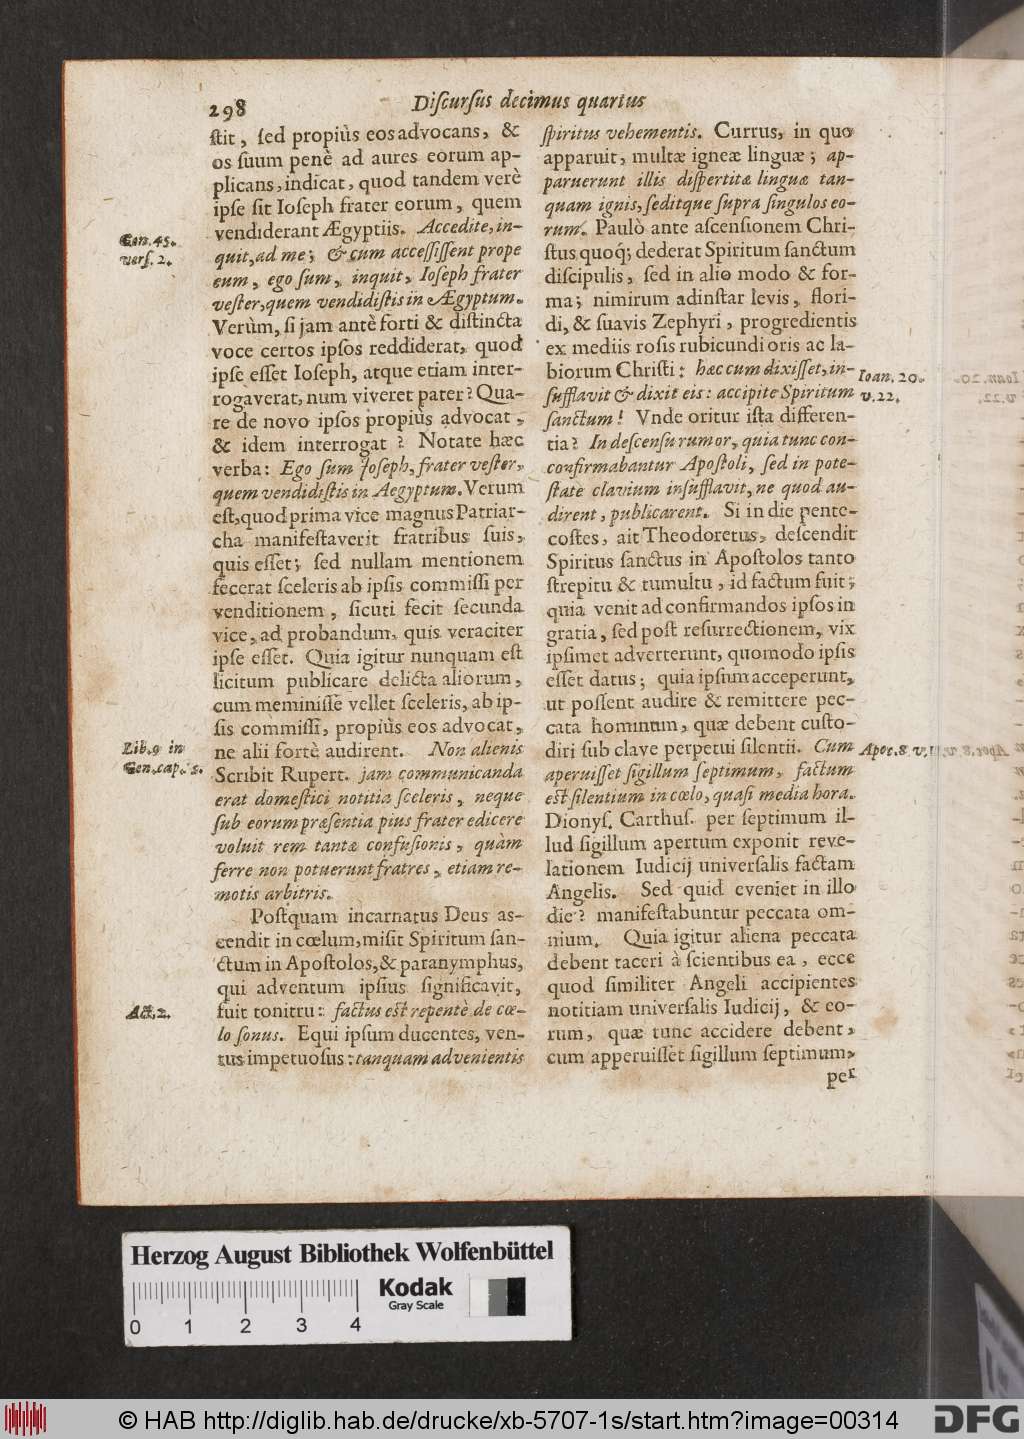 298
Diſcurſus decimus quartus
ſtit, ſed propiùs eos advocans, &
os ſuum penè ad aures eorum ap-
plicans, indicat, quod tandem verè
ipſe ſit Ioſeph frater eorum, quem
vendiderant Ægyptiis. Accedite, in-
quit, ad me; & cum acceſſiſſent prope
eum, ego ſum, inquit, Ioſeph frater
veſter, quem vendidiſtis in Ægyptum.
Verùm, ſi jam antè forti & diſtincta
voce certos ipſos reddiderat, quod
ipſe eſſet Ioſeph, atque etiam inter-
rogaverat, num viveret pater? Qua-
re de novo ipſos propiùs advocat,
& idem interrogat? Notate hæc
verba: Ego ſum Joſeph, frater veſter,
quem vendidiſtis in Aegyptum. Verum
eſt, quod prima vice magnus Patriar-
cha manifeſtaverit fratribus ſuis,
quis eſſet; ſed nullam mentionem
fecerat ſceleris ab ipſis commiſſi per
venditionem, ſicuti fecit ſecunda
vice, ad probandum, quis veraciter
ipſe eſſet. Quia igitur nunquam eſt
licitum publicare delicta aliorum,
cum meminiſſe vellet ſceleris, ab ip-
ſis commiſſi, propiùs eos advocat,
ne alii fortè audirent. Non alienis
Scribit Rupert. jam communicanda
erat domeſtici notitia ſceleris, neque
ſub eorum præſentia pius frater edicere
voluit rem tantæ confuſionis, quàm
ferre non potuerunt fratres, etiam re-
motis arbitris.
Poſtquam incarnatus Deus aſ-
cendit in cœlum, miſit Spiritum ſan-
ctum in Apoſtolos, & paranymphus,
qui adventum ipſius ſignificavit,
fuit tonitru: factus eſt repentè de cœ-
lo ſonus. Equi ipſum ducentes, ven-
tus impetuoſus: tanquam advenientis
Gen. 45.
verſ. 2.
Lib. 9 in
Gen. cap. 5.
Act. 2.
ſpiritus vehementis. Currus, in quo
apparuit, multæ igneæ linguæ; ap-
paruerunt illis diſpertitæ linguæ tan-
quam ignis, ſeditque ſupra ſingulos eo-
rum. Paulò ante aſcenſionem Chri-
ſtus quoq́; dederat Spiritum ſanctum
diſcipulis, ſed in alio modo & for-
ma; nimirum ad inſtar levis, flori-
di, & ſuavis Zephyri, progredientis
ex mediis roſis rubicundi oris ac la-
biorum Chriſti: hæc cum dixiſſet, in-
ſufflavit & dixit eis: accipite Spiritum
ſanctum! Vnde oritur iſta differen-
tia? In deſcenſu rumor, quia tunc con-
confirmabantur Apoſtoli, ſed in pote-
ſtate clavium inſufflavit, ne quod au-
dirent, publicarent. Si in die pente-
coſtes, ait Theodoretus, deſcendit
Spiritus ſanctus in Apoſtolos tanto
ſtrepitu & tumultu, id factum fuit;
quia venit ad confirmandos ipſos in
gratia, ſed poſt reſurrectionem, vix
ipſimet adverterunt, quomodo ipſis
eſſet datus; quia ipſum acceperunt,
ut poſſent audire & remittere pec-
cata hominum, quæ debent cuſto-
diri ſub clave perpetui ſilentii. Cum
aperuiſſet ſigillum ſeptimum, factum
eſt ſilentium in cœlo, quaſi media hora.
Dionyſ. Carthuſ. per ſeptimum il-
lud ſigillum apertum exponit reve-
lationem Iudicij univerſalis factam
Angelis. Sed quid eveniet in illo
die? manifeſtabuntur peccata om-
nium. Quia igitur aliena peccata
debent taceri à ſcientibus ea, ecce
quod ſimiliter Angeli accipientes
notitiam univerſalis Iudicij, & eo-
rum, quæ tunc accidere debent,
cum apperuiſſet ſigillum ſeptimum,
per
Ioan. 20.
v. 22.
Apoc. 8. v. 1.
Herzog August Bibliothek Wolfenbüttel
Kodak
Gray Scale
0 1 2 3 4
© HAB http://diglib.hab.de/drucke/xb-5707-1s/start.htm?image=00314
DFG